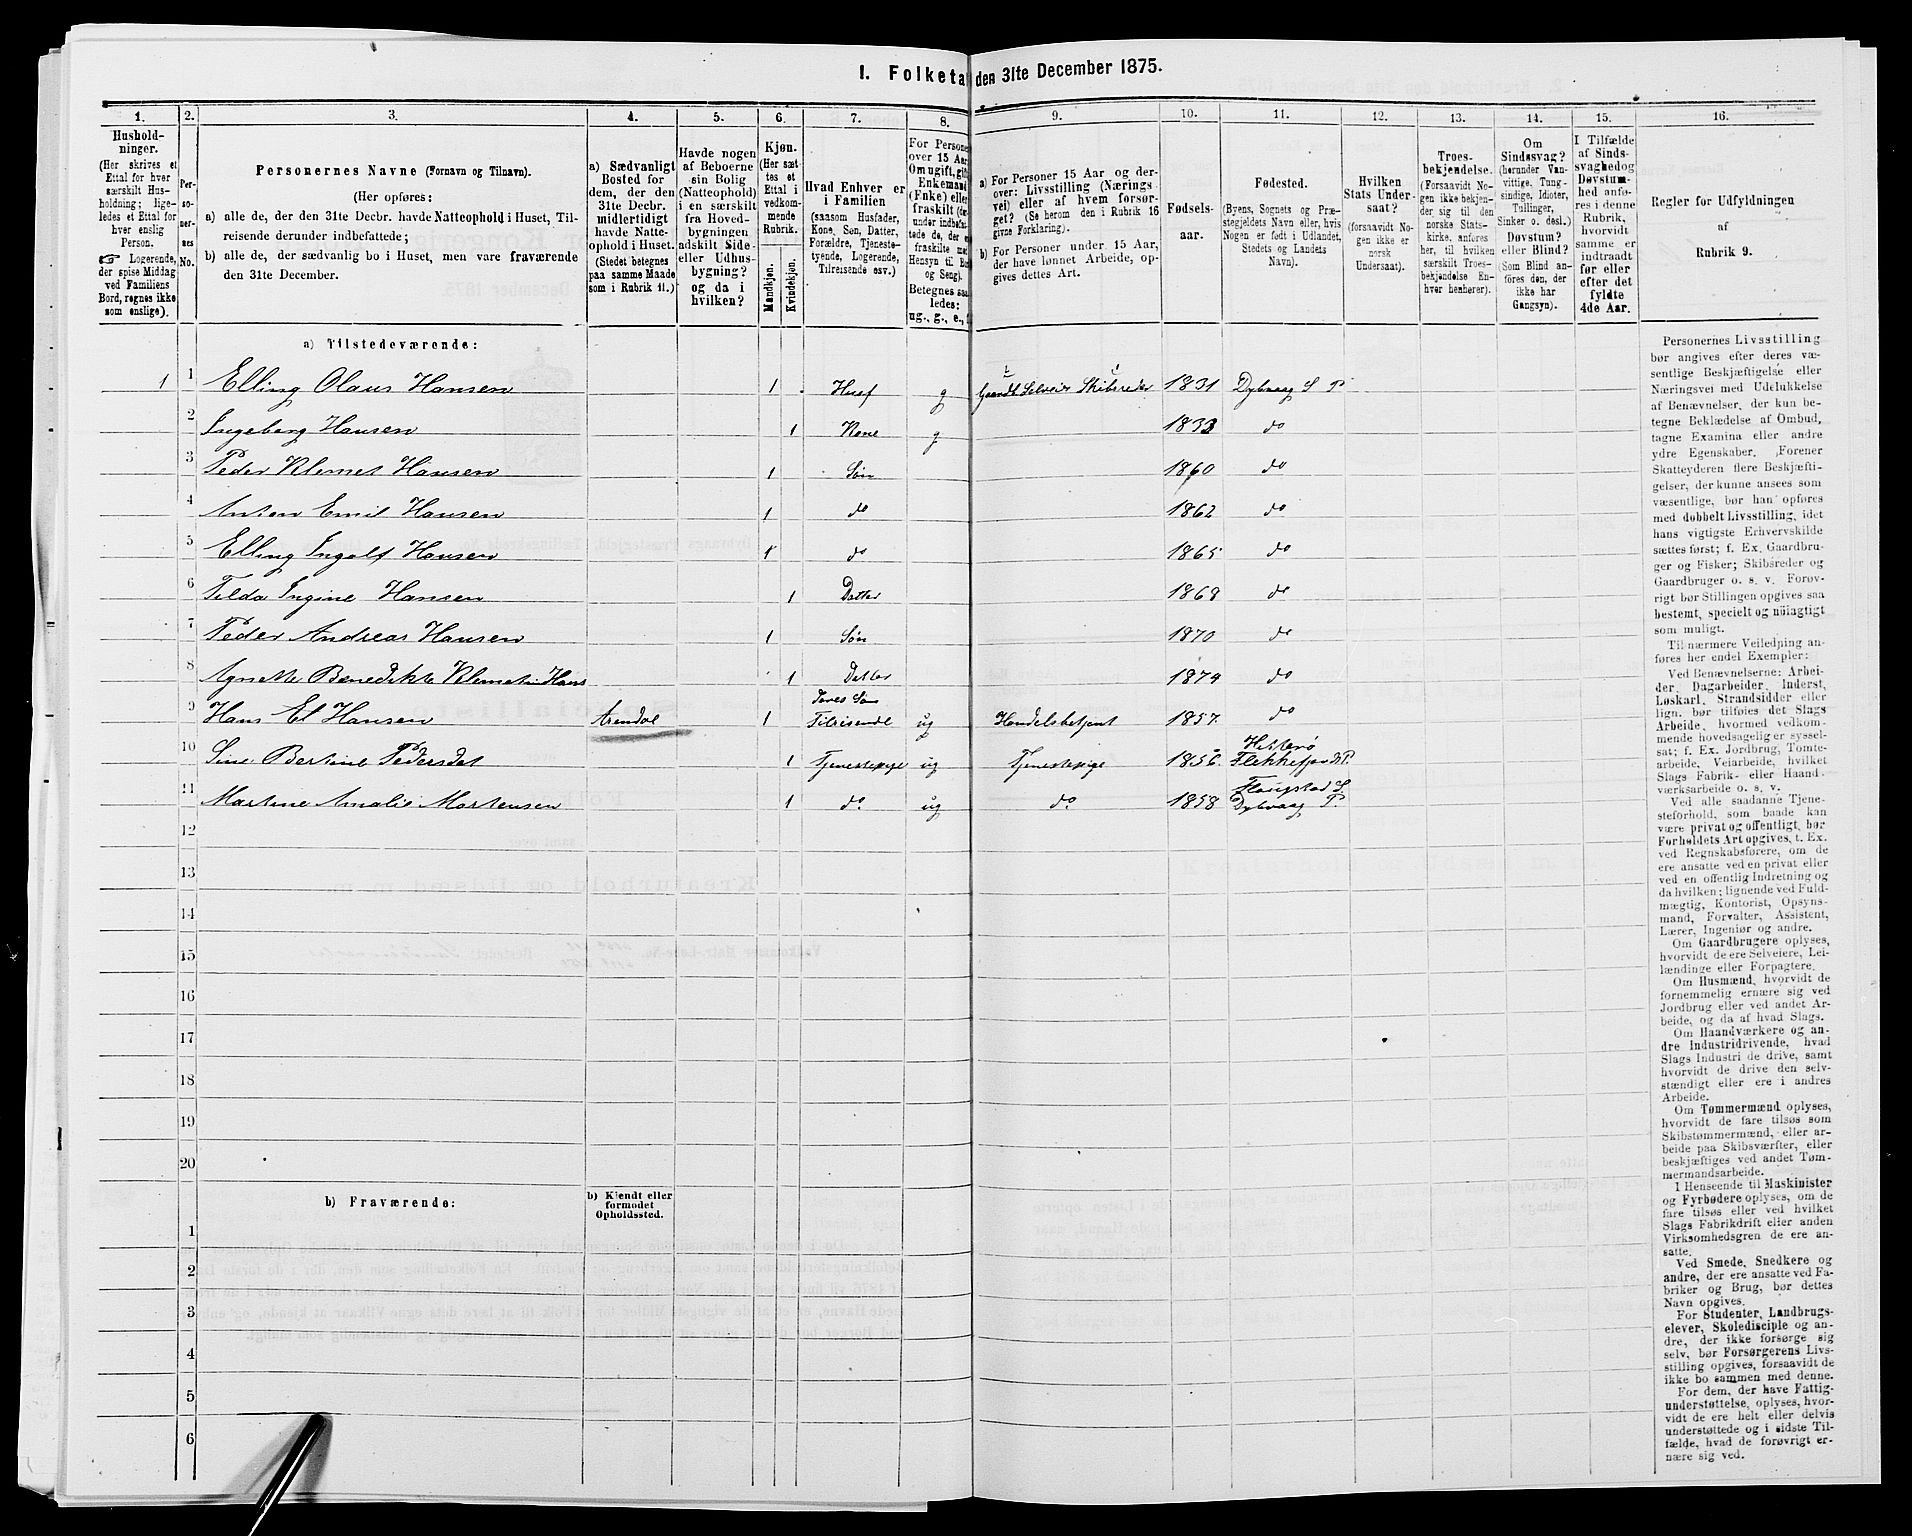 I. Folketa den 31te December 1875.
1. 2. 3. 4. 5. 6. 7. 8. 9. 10. 11. 12. 13. 14. 15. 16.
Hushold-
ninger.
(Her skrives et
Ettal for hver
særskilt Hus-
holdning; lige-
ledes et Ettal for
hver enslig
Person.
☞ Logerende,
der spise Middag
ved Familiens
Bord, regnes ikke
som enslige).
Per-
so-
ner-
nes
No.
Personernes Navne (Fornavn og Tilnavn).
(Her opføres:
a) alle de, der den 31te Decbr. havde Natteophold i Huset, Til-
reisende derunder indbefattede;
b) alle de, der sædvanlig bo i Huset, men vare fraværende
den 31te December.
a) Sædvanligt
Bosted for
dem, der den
31te Decbr.
midlertidigt
havde Natte-
ophold i Huset.
(Stedet betegnes
paa samme Maade
som i Rubrik 11.)
Havde nogen
af Beboerne
sin Bolig
(Natteophold)
i en særskilt
fra Hoved-
bygningen
adskilt Side-
eller Udhus-
bygning?
og da i
hvilken?
Kjøn.
(Her sæt-
tes et
Ettal i
vedkom-
mende
Rubrik.
Mandkjøn.
Kvindekjøn.
Hvad Enhver er
i Familien
(saasom Husfader,
Kone, Søn, Datter,
Forældre, Tjeneste-
tyende, Logerende,
Tilreisende osv.)
For Persone
over 15 Aar
Om ugift, gift
Enkemand
(Enke) eller
fraskilt (der-
under indbefat-
tede de, der er
fraskilte med
Hensyn til Bo
og Seng).
Betegnes saa-
ledes:
ug., g., e.,
a) For Personer 15 Aar og der-
over: Livsstilling (Nærings
vei) eller af hvem forsør-
get? (Se herom den i Rubrik 16
givne Forklaring).
b) For Personer under 15 Aar,
der have lønnet Arbeide, op-
gives dettes Art.
Fødsels-
aar.
Fødested.
(Byens, Sognets og Præ-
stegjeldets Navn eller, hvis
Nogen er født i Udlandet,
Stedets og Landets
Navn).
Hvilken
Stats Under-
saat?
(forsaavidt No-
gen ikke er
norsk
Undersaat).
Troes-
bekjendelse.
(Forsaavidt No-
gen ikke bekjen-
der sig til den
norske Stats-
kirke, anføres
her, til hvilken
særskilt Troes-
bekjendelse En-
hver henhører).
Om
Sindssvag?
(herunder Van-
vittige, Tung-
sindige, Idioter,
Tullinger,
Sinker o. desl.)
Døvstum?
eller Blind?
(Som Blind an-
føres den, der
ikke har
Gangsyn).
I Tilfælde
af Sinds-
svaghed og
Døvstum-
hed anfø-
res i denne
Rubrik,
hvorvidt
samme er
indtraadt
før eller
efter det
fyldte
4de Aar.
Regler for Udfyldningen
af
Rubrik 9.
a) Tilstedeværende:
1 1 Elling Olaus Hansen 1 Husf g Gaardb Selveier Skibsreder 1831 Dybvaag S P
2 Ingeborg Hansen 1 Kone g 1833 do
3 Peder Klemet Hansen 1 Søn 1860 do
4 Anton Emil Hansen 1 do 1862 do
5 Elling Ingolf Hansen 1 do 1865 do
6 Tilda Ingine Hansen 1 Datter 1868 do
7 Peder Andreas Hansen 1 Søn 1870 do
8 Agnette Benedikte Klemetin Hans 1 Datter 1874 do
9 Hans El Hansen Arendal 1 Søn Tilreisende ug Handelsbetjent 1857. do
10 Sine Bertine Pedersdat 1 Tjenestepige ug Tjenestepige 1856. Hitterø Flekkefjord P.
11 Martine Amalie Mortensen 1 do. ug do. 1858 Flangstad S Dybvaag P.
12
13
14
15
16
17
18
19
20
b) Fraværende:
b) Kjendt eller
formodet
Opholdssted.
1
2
3
4
5
6
Personernes Livsstilling
bør angives efter deres væ-
sentlige Beskjæftigelse eller
Næringsvei med Udelukkelse
af Benævnelser, der kun be-
tegne Beklædelse af Ombud,
tagne Examina eller andre
ydre Egenskaber. Forener
Skatteyderen flere Beskjæfti-
gelser, der kunne ansees som
væsentlige, bør han opføres
med dobbelt Livsstilling, idet
hans vigtigste Erhvervskilde
sættes først; f. Ex. Gaardbru-
ger og Fisker; Skibsreder og
Gaardbruger o. s. v. Forøv-
rigt bør Stillingen opgives saa
bestemt, specielt og nöiagtigt
som muligt.
Til nærmere Veiledning an-
føres her endel Exempler:
Ved Benævnelserne: Arbei-
der, Dagarbeider, Inderst,
Løskarl, Strandsidder eller
lign. bør tilføies det Slags
Arbeide, hvormed vedkom-
mende hovedsagelig er syssel-
sat; f. Ex. Jordbrug, Tomte-
arbeide, Veiarbeide, hvilket
Slags Fabrik- eller Haand-
værksarbeide o. s. v.
Ved alle saadanne Tjene-
steforhold, som baade kan
være privat og offentligt, bør
Forholdets Art opgives, t. Ex.
ved Regnskabsførere, om de
ere ansatte ved en privat eller
ved en offentlig Indretning og
da hvilken; lignende ved Fuld-
mægtig, Kontorist, Opsyns-
mand, Forvalter, Assistent,
Lærer, Ingeniør og andre.
Om Gaardbrugere oplyses,
hvorvidt de ere Selveiere, Lei-
lændinge eller Forpagtere.
Om Husmænd, hvorvidt de
fornemmelig ernære sig ved
Jordbrug eller ved andet Ar-
beide, og da af hvad Slags.
Om Haandværkere og an-
dre Industridrivende, hvad
Slags Industri de drive, samt
hvorvidt de drive den selv-
stændigt eller ere i andres
Arbeide.
Om Tømmermænd oplyses,
hvorvidt de fare tilsøs som
Skibstømmermænd, eller ar-
beide paa Skibsværfter, eller
beskjæftiges ved andet Tøm-
mermandsarbeide.
I Henseende til Maskinister
og Fyrbødere oplyses, om de
fare tilsøs eller ved hvilket
Slags Fabrikdrift eller anden
Virksomhedsgren de ere an-
satte.
Ved Smede, Snedkere og
andre, der ere ansatte ved Fa-
briker og Brug, bør dettes
Navn opgives.
For Studenter, Landbrugs-
elever, Skoledisciple og an-
dre, der ikke forsørge sig
selv, bør Forsørgerens Livs-
stilling opgives, forsaavidt de
ikke bo sammen med denne.
For dem, der have Fattig-
understøttelse, oplyses, hvor-
vidt de ere helt eller delvis
understøttede og i sidste Til-
fælde, hvad de forøvrigt er-
nære sig ved.